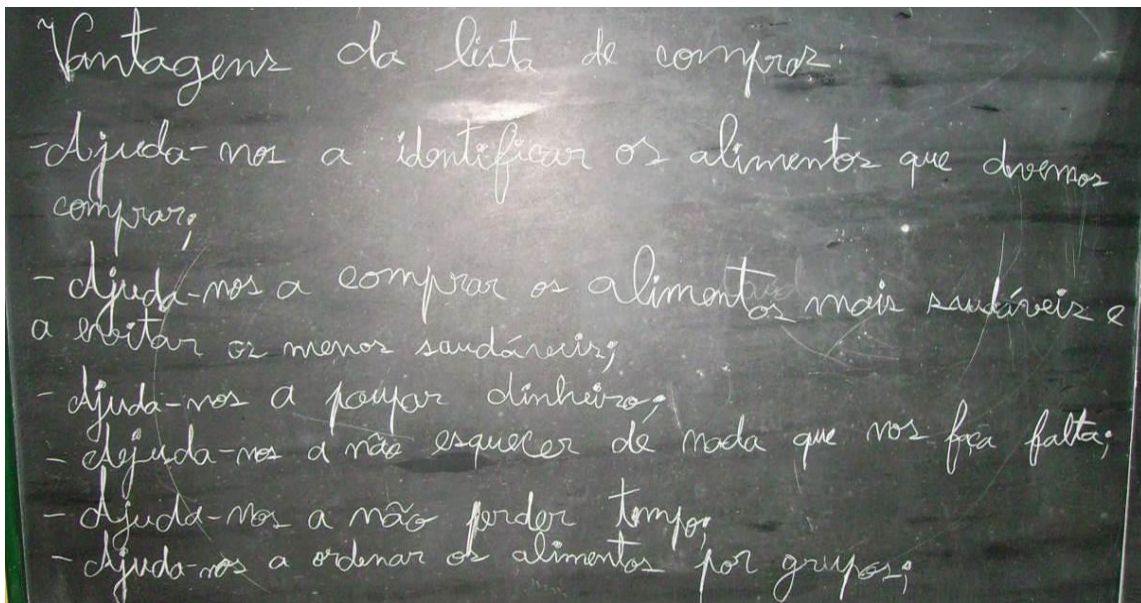 Vantagens da lista de compras:
-Ajuda-nos a identificar os alimentos que devemos
comprar;
- Ajuda-nos a comprar os alimentos mais saudáveis e
a evitar os menos saudáveis;
- Ajuda-nos a poupar dinheiro;
- Ajuda-nos a não esquecer de nada que nos faça falta;
- Ajuda-nos a não perder tempo;
- Ajuda-nos a ordenar os alimentos por grupos;